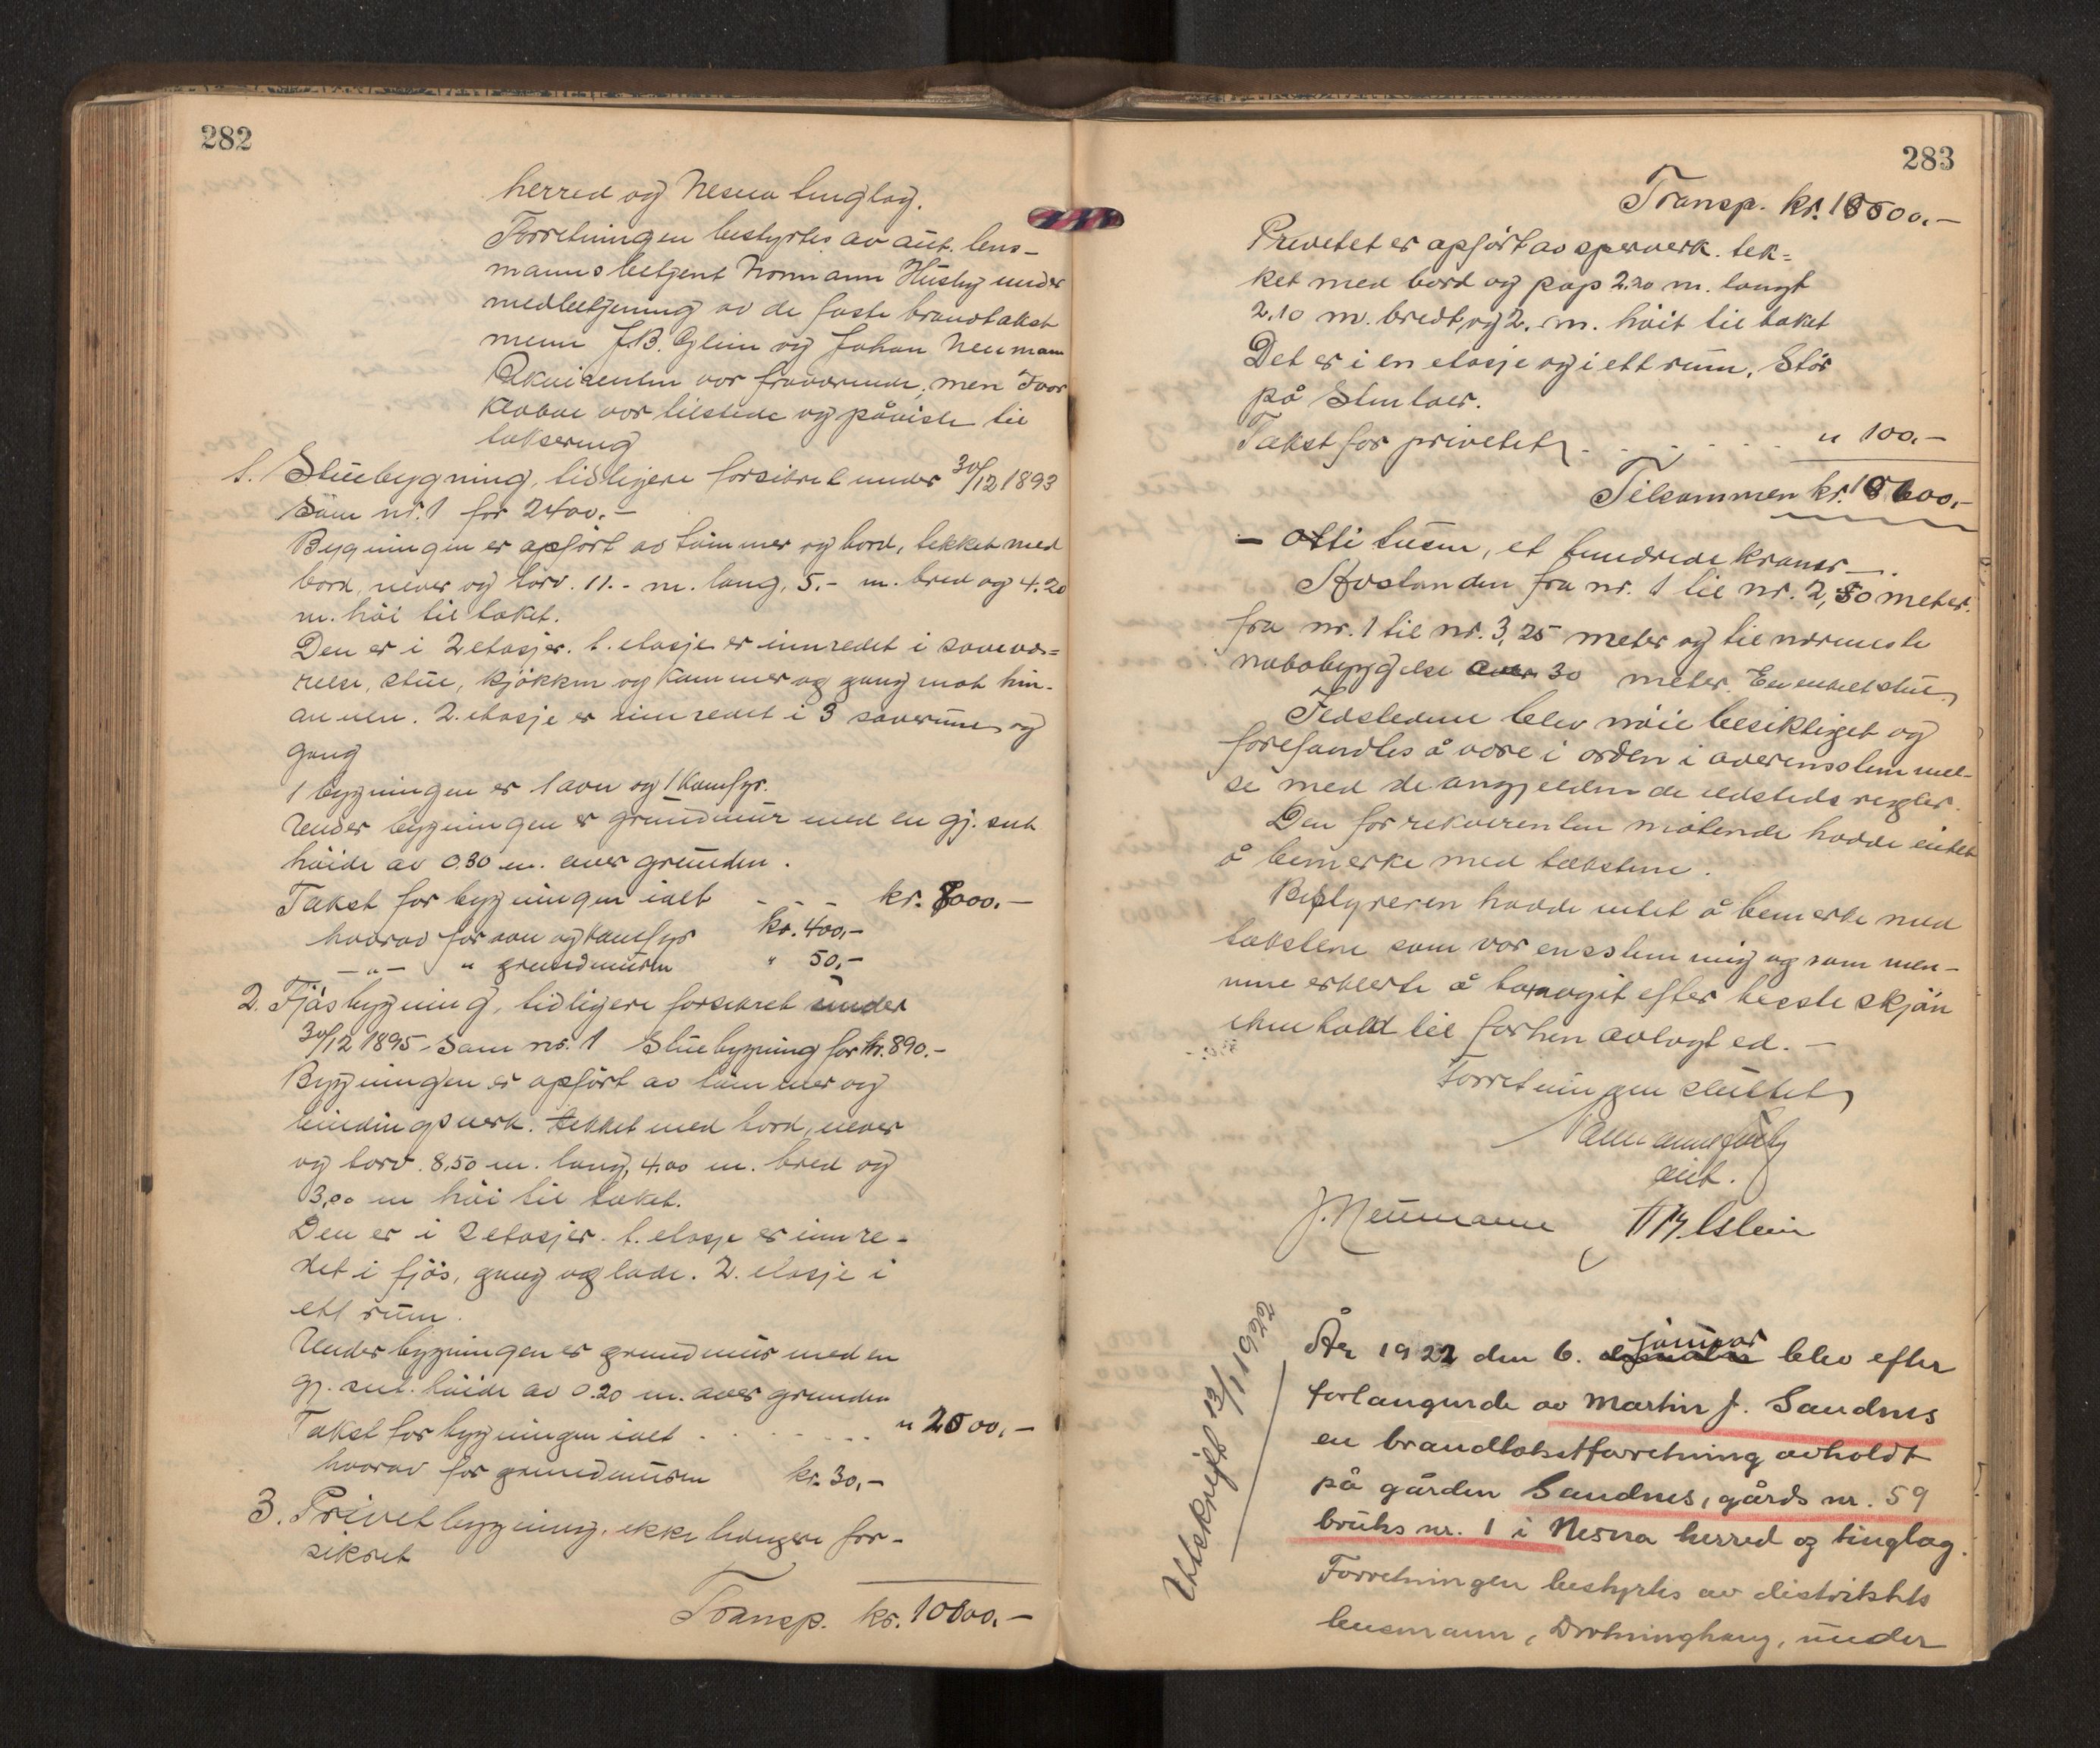 282
herred og Nesna tinglag.
Forretningen bestyrtes av aut. lens-
mannsbetjent Normann Husby under
medbetjening av de faste brandtakst
menn J.B. Glein og Johan Neumann
Rekvirenten var fraværende, men Ivar
var tilstede og påviste til
taksering
1. Stuebygning, tidligere forsikret under 30/12 1893
Som nr. 1 for 2400.-
Bygningen er opført av tømmer og bord, tekket med
bord, never og torv. 11.- m. lang, 5.- m. bred og 4.20
m. høi til taket.
Den er i 2 etasjer. 1. etasje er innredet i sovevæ-
relse, stue, kjøkken og kammer og gang mot hin-
annen. 2. etasje er innredet i 3 soverum og
gang
I bygningen er 1 ovn og 1 komfyr.
Under bygningen er grundmur med en gj. snt.
høide av 0.30 m. over grunden.
Takst for bygningen ialt - - - kr. 8000.-
hvorav for ovn og komfyr kr. 400,-
-"- " grundmuren " 50,-
2. Fjøsbygning, tidligere forsikret under
30/12 1895 Som nr. 1 Stuebygning for kr. 890.-
Bygningen er opført av tømmer og
bindingsverk. tekket med bord, never
og torv. 8,50 m. lang, 4,00 m. bred og
3,00 m høi til taket.
Den er i 2 etasjer. 1. etasje er innre-
det i fjøs, gang og lade. 2. etasje i
ett rum.
Under bygningen er grundmur med en
gj. snt. høide av 0.20 m. over grunden
Takst for bygningen ialt . . . . . . . " 2500,-
hvorav for grundmuren kr. 30,-
3. Privetbygning, ikke tidligere for-
sikret
Transp. kr. 10500.-
283
Transp. kr. 10500.-
Privetet er opført av sperverk. tek-
ket med bord og pap 2.20 m. langt
2,10 m. bredt og 2.- m. høit til taket
Det er i en etasje og i ett rum. Står
på Stentaer.
Takst for privetet . . . . . . " 100.-
Tilsammen kr. 10600,-
- otti tusen, et hundrede kroner -.
Avstanden fra nr. 1 til nr. 2, 50 meter.
fra nr. 1 til nr. 3, 25 meter og til nærmeste
nabobygelse over 30 meter. En enkelt stue
Ildstedene blev nøie besiktiget og
forefandtes å være i orden i overensstemmel-
se med de angjeldende ildstedsregler.
Den for rekvirenten møtende hadde intet
å bemerke med takstene.
Bestyreren hadde intet å bemerke med
takstene som var enstemmig og som men-
nene erklerte å ha avgit efter beste skjøn
i henhold til forhen avlagt ed. -
Forretningen sluttet
Normann Husby
aut.
J. Neumann J.B. Glein
Utskrift 13/1 1922
År 1922 den 6. januar blev efter
forlangende av Martin J. Sandnes
en brandtakstforretning avholdt
på gården Sandnes, gårds nr. 59
bruks nr. 1 i Nesna herred og tinglag.
Forretningen bestyrtes av distriktets
lensmann, Drotninghaug, under